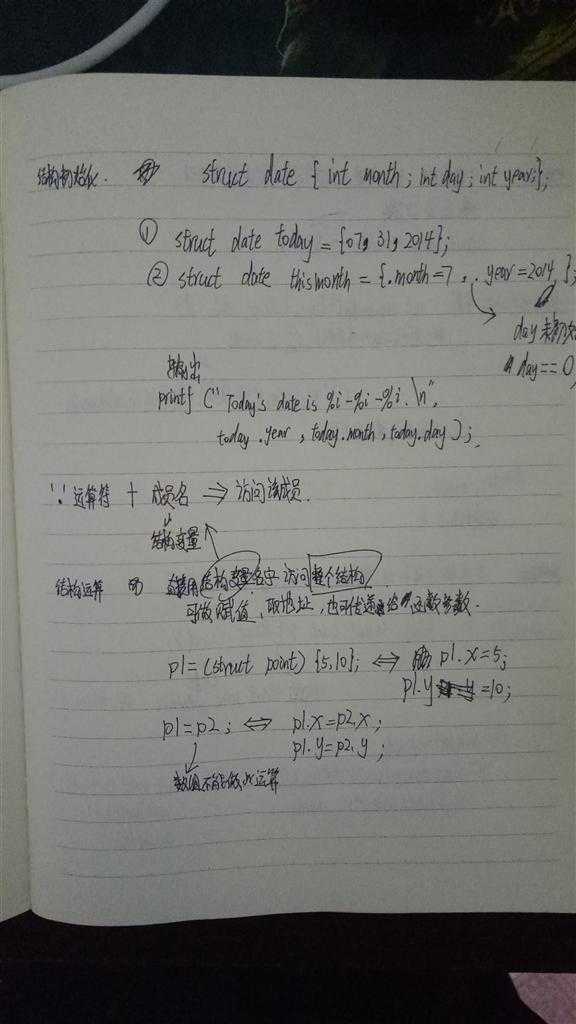 结构初始化. struct date { int month ; int day ; int year; };
① struct date today = {07, 31, 2014};
② struct date thismonth = {.month=7, .year=2014};
day 未初始
day == 0
输出
printf ("Today's date is %i-%i-%i.\n",
today.year, today.month, today.day);
"."运算符 + 成员名 ⇒ 访问该成员.
结构变量
结构运算 用结构变量名字 访问 整个结构
可做赋值、取地址, 也可传递给函数参数.
p1=(struct point) {5,10}; ⇔ p1.x=5;
p1.y =10;
p1=p2; ⇔ p1.x=p2.x;
p1.y=p2.y;
数组不能做此运算